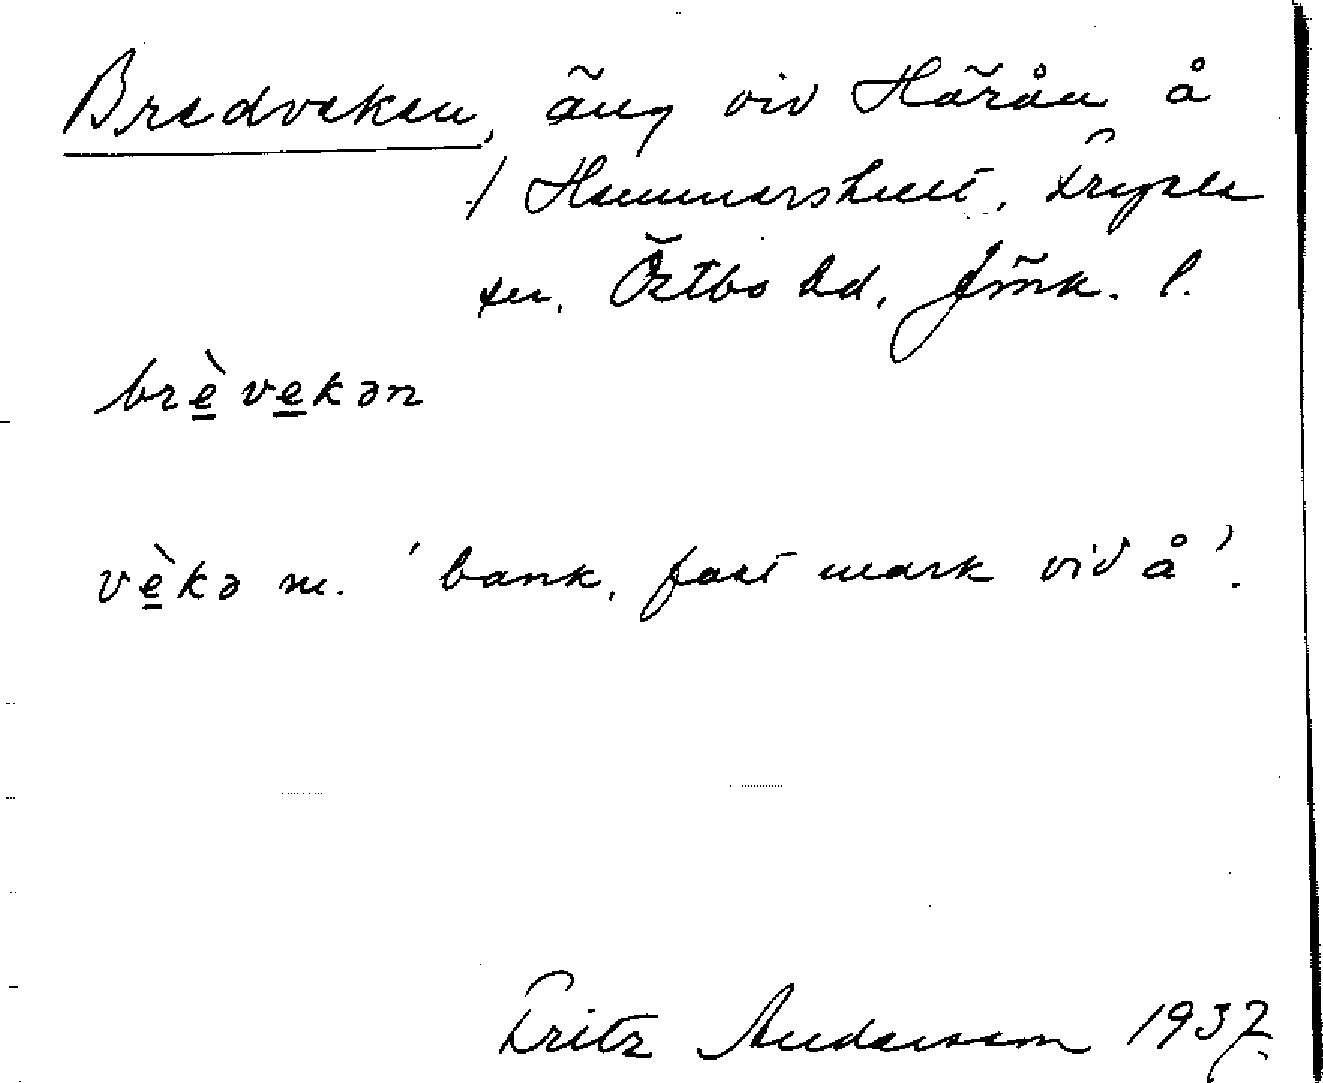 Bredveken, äng vid Härån å
/ Hammarshult, Fryele
sn, Östbo hd, Jönk. l.
brèvekən
vèkə m. 'bank, fast mark vid å'.
Fritz Andersson 1937